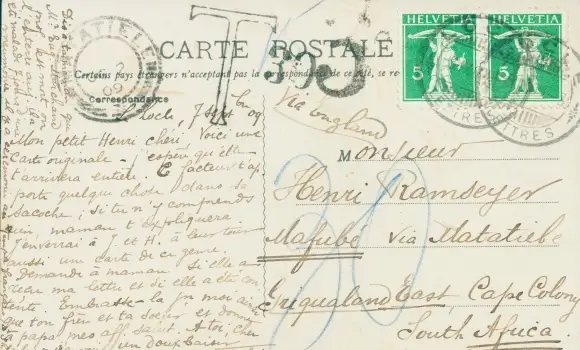 CARTE POSTALE
Certains pays étrangers n'acceptant pas la correspondance de ce côté, se re
Correspondance
HELVETIA
HELVETIA
5
5
T
30c
20
MATATIELE
09
LETTRES
LETTRES
Locle, 7 Sept 09
Mon petit Henri chéri, Voici une
Carte originale - j'espère qu'elle
t'arrivera entière. Ce facteur t'ap
porte quelque chose dans sa
sacoche; si tu n'y comprends
rien, maman t'expliquera.
J'enverrai à J. et H. à leur tour
aussi une carte de ce genre.
Demande à maman si elle a
reçu ma lettre et si elle a été con
tente. Embrasse-la pr moi ainsi
que ton frère et ta soeur et donne
à papa mes aff. salut. A toi, cher
un doux baiser
Dis à ta
Via England
Monsieur
Henri Ramseyer
Mafube via Matatiele
Griqualand East, Cape Colony
South Africa.